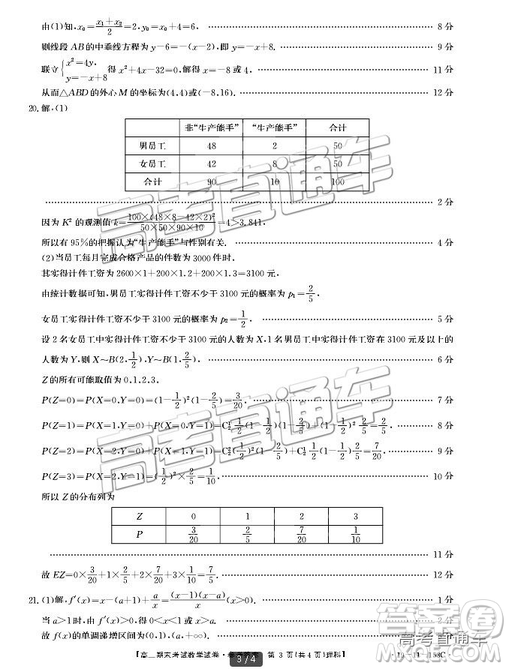 由(1)知, x₀=(x₁+x₂)/2=2, y₀=x₀+4=6. 8 分
则线段 AB 的中垂线方程为 y-6=-(x-2), 即 y=-x+8. 9 分
联立{x²=4y, y=-x+8 得 x²+4x-32=0, 解得 x=-8 或 4, 11 分
从而△ABD 的外心 M 的坐标为(4,4)或(-8,16). 12 分
20. 解:(1)
非“生产能手” “生产能手” 合计
男员工 48 2 50
女员工 42 8 50
合计 90 10 100
2 分
因为 K² 的观测值 k=100×(48×8-42×2)²/(50×50×90×10)=4>3.841,
所以有 95%的把握认为“生产能手”与性别有关. 4 分
(2)当员工每月完成合格产品的件数为 3000 件时,
其实得计件工资为 2600×1+200×1.2+200×1.3=3100 元,
由统计数据可知, 男员工实得计件工资不少于 3100 元的概率为 p₁=2/5,
女员工实得计件工资不少于 3100 元的概率为 p₂=1/2. 5 分
设 2 名女员工中实得计件工资不少于 3100 元的人数为 X, 1 名男员工中实得计件工资不少于 3100 元的
人数为 Y, 则 X~B(2,1/2), Y~B(1,2/5). 6 分
Z 的所有可能取值为 0,1,2,3.
P(Z=0)=P(X=0,Y=0)=(1-1/2)²(1-2/5)=3/20, 7 分
P(Z=1)=P(X=1,Y=0)+P(X=0,Y=1)=C₂¹ 1/2(1-1/2)(1-2/5)+(1-1/2)² 2/5=2/5, 8 分
P(Z=2)=P(X=2,Y=0)+P(X=1,Y=1)=C₂²(1/2)²(1-2/5)+C₂¹ 1/2(1-1/2) 2/5=7/20, 9 分
P(Z=3)=P(X=2,Y=1)=(1/2)²×2/5=1/10, 10 分
所以 Z 的分布列为
Z 0 1 2 3
P 3/20 2/5 7/20 1/10
11 分
故 EZ=0×3/20+1×2/5+2×7/20+3×1/10=7/5. 12 分
21. (1)解, f′(x)=x-(a+1)+a/x=(x-1)(x-a)/x (x>0). 1 分
当 a>1 时, 由 f′(x)>0, 得 0<x<1 或 x>a.
故 f(x)的单调递增区间为(0,1), (a,+∞).
3/4
第 3 页(共 4 页)
高考直通车